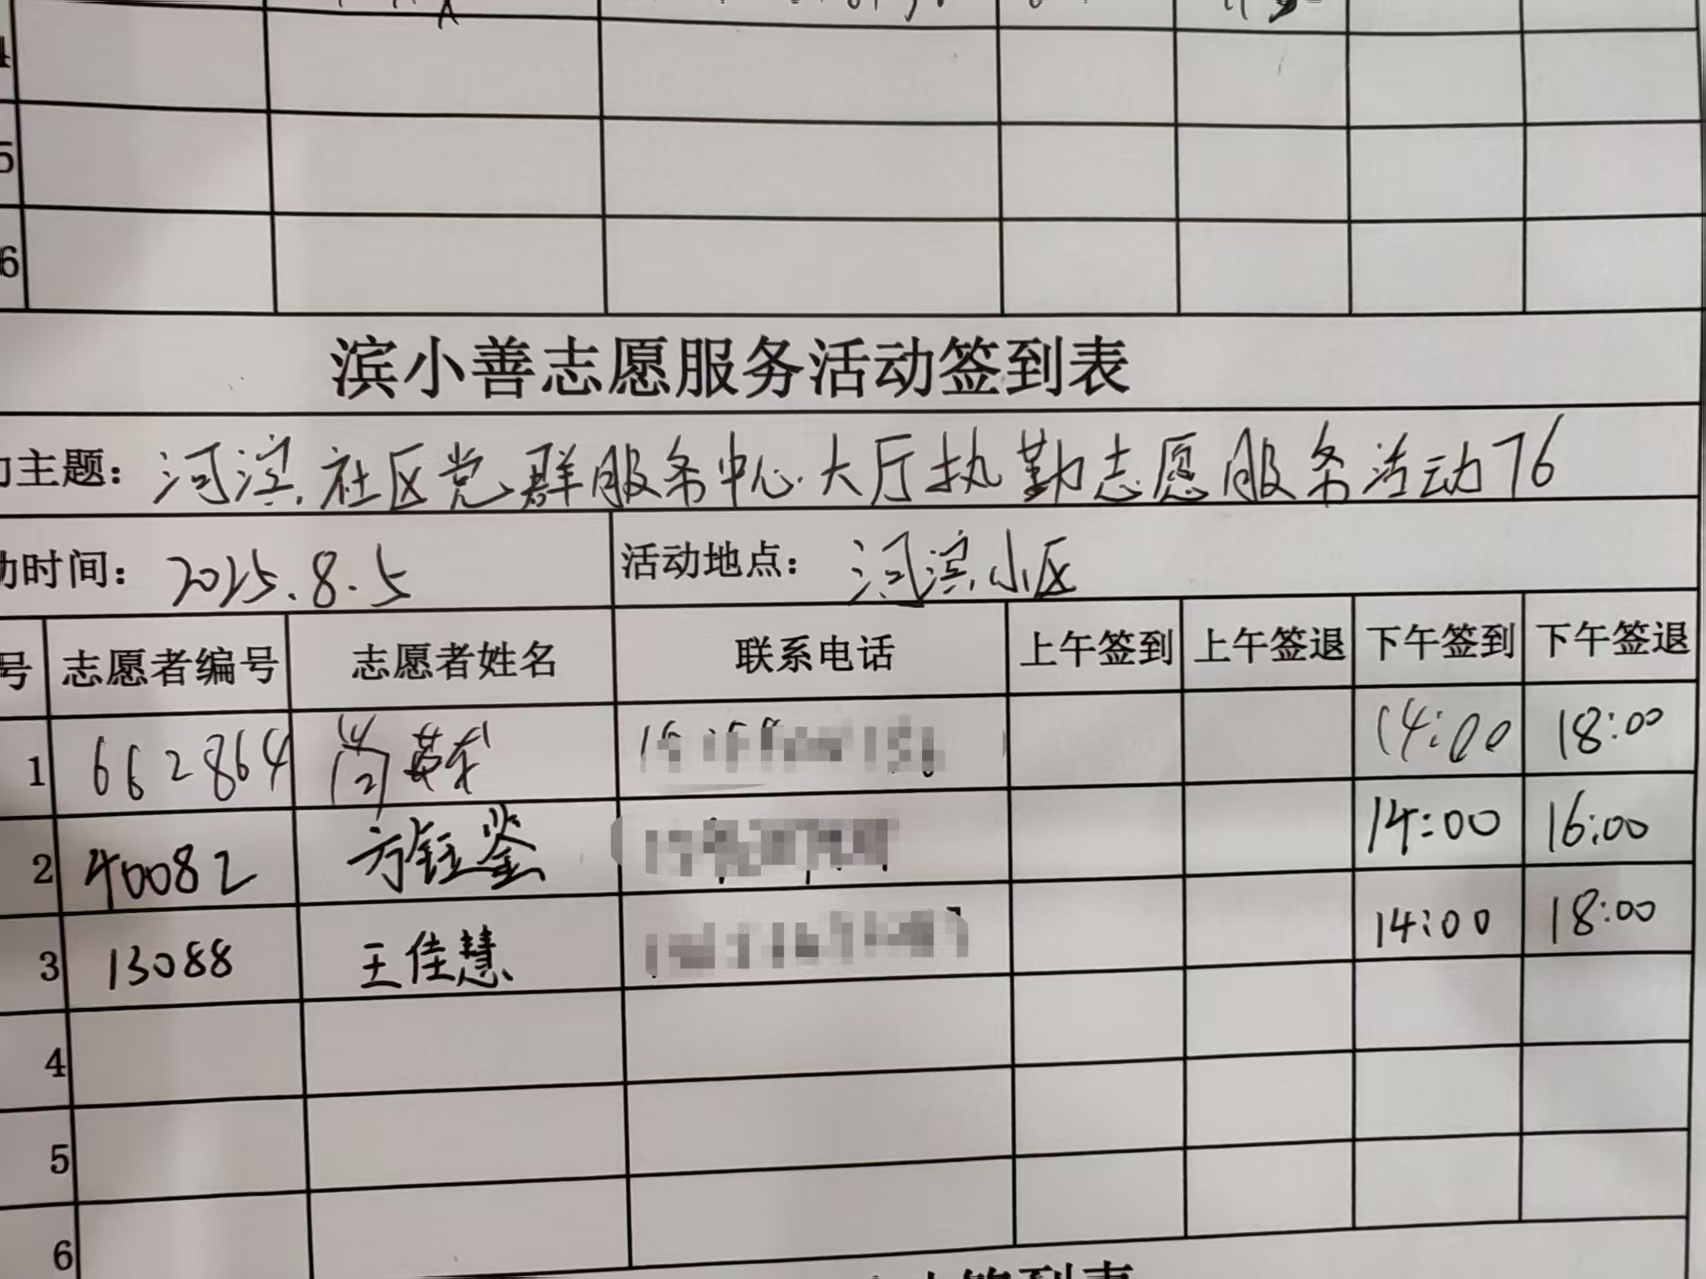 4
5
6
滨小善志愿服务活动签到表
主题：河滨社区党群服务中心大厅执勤志愿服务活动76
动时间：2025.8.5 活动地点：河滨小区
号 志愿者编号 志愿者姓名 联系电话 上午签到 上午签退 下午签到 下午签退
1 662864 14:00 18:00
2 40082 方钰鉴 14:00 16:00
3 13088 王佳慧 14:00 18:00
4
5
6
签到表